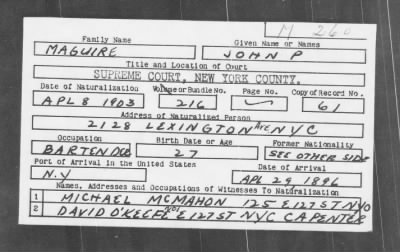 M 260
Family Name Given Name or Names
MAGUIRE JOHN P
Title and Location of Court
SUPREME COURT, NEW YORK COUNTY.
Date of Naturalization Volume or Bundle No. Page No. Copy of Record No.
APL 8 1903 216 61
Address of Naturalized Person
2128 LEXINGTON AVE NYC
Occupation Birth Date or Age Former Nationality
BARTENDER 27 SEE OTHER SIDE
Port of Arrival in the United States Date of Arrival
N.Y APL 29 1896
Names, Addresses and Occupations of Witnesses To Naturalization
1 MICHAEL MCMAHON 125 E 127 ST NYC
2 DAVID O'KEEFE E 127 ST NYC CAPENTER